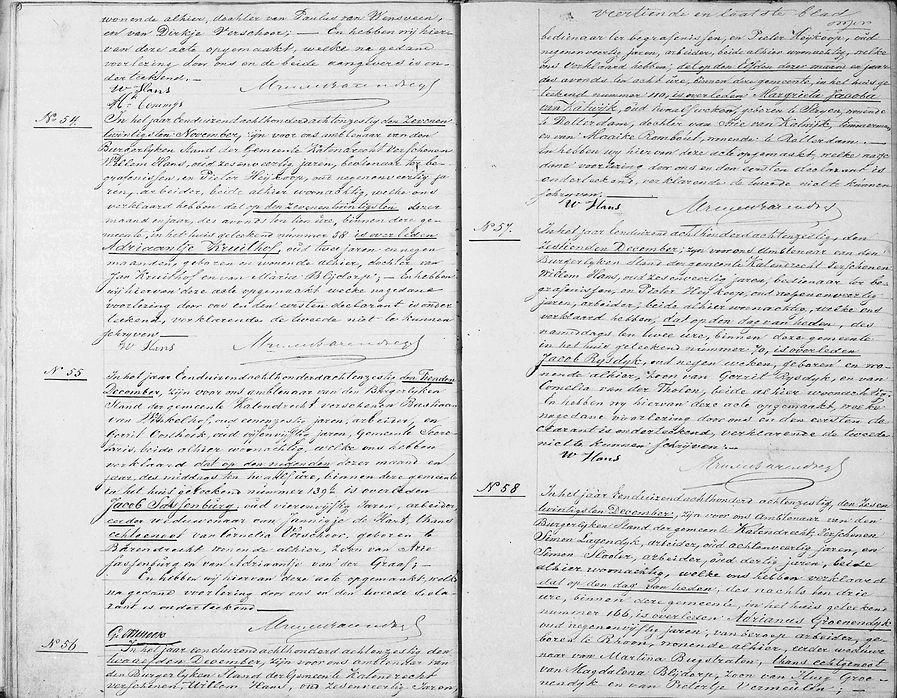 wonende alhier, dochter van Paulus van Wensveen,
en van Dirkje Verschoor; — En hebben wij hier
van deze acte opgemaakt, welke na gedane
voorlezing door ons en de beide aangevers is on-
derteekend. —
W Hans
N° 54.
In het jaar Eenduizendachthonderdachtenzestig den Zevenen
twintigsten November, zijn voor ons ambtenaar van den
Burgerlyken Stand der Gemeente Katendrecht Verschenen
Willem Hans, oud zesenveertig jaren, bedienaar ter be-
grafenissen, en Pieter Heijkoop, oud negenenveertig ja-
ren, arbeider, beide alhier woonachtig, welke ons
verklaard hebben dat op den zevenentwintigsten dezer
maand en jaar, des avonds ten tien ure, binnen deze ge-
meente, in het huis geteekend nummer 58 is overleden
Adriaantje Kruithof, oud twee jaren en negen
maanden, geboren en wonende alhier, dochter van
Jan Kruithof en van Maria Blijdorp; — En hebben
wij hiervan deze acte opgemaakt welke na gedane
voorlezing door ons en den eersten declarant is onder
teekend, verklarende de tweede niet te kunnen
schryven
W Hans
N° 55
In het jaar Eenduizendachthonderdachtenzestig den Tienden
December, zijn voor ons ambtenaar van den Burgerlyken
Stand der gemeente Katendrecht verschenen Bastiaan
van Winkelhof, oud jaren, arbeider, en
Gerrit Oosthoek, oud vijfenvijftig jaren, Gemeente Secre-
taris, beide alhier woonachtig, welke ons hebben
verklaard dat op den negenden dezer maand en
jaar, des middags ten twaalf ure, binnen deze gemeente
in het huis geteekend nummer 139 is overleden
Jacob Jassenburg, oud vierenvijftig Jaren, arbeider
eerder weduwenaar van Jannigje de Hart, thans
echtgenoot van Cornelia Verschoor, geboren te
Barendrecht wonende alhier, Zoon van Arie
Jassenburg en van Adriaantje van der Graaf; —
En hebben wij hiervan deze acte opgemaakt, welke
na gedane voorlezing door ons en den tweede decla-
rant is onderteekend
N° 56
In het jaar eenduizend achthonderd achtenzestig den
twaalfden December, zijn voor ons ambtenaar van
den Burgerlyken Stand der Gemeente Katendrecht
verschenen, Willem Hans, oud zesenveertig Jaren,
Veertiende en laatste blad
bedienaar ter begrafenissen, en Pieter Heijkoop, oud
negenenveertig jaren, arbeider, beide alhier woonachtig, welke
ons verklaard hebben, dat op den elfden dezer maand en jaar
des avonds ten acht ure, binnen deze gemeente, in het huis ge-
teekend nummer 110, is overleden Margrieta Jacoba
van Katwijk, oud twaalf weken, geboren te , wonende
te Rotterdam, dochter van Arie van Katwijk, timmerman
en van Maaike Romboiel, wonende te Rotterdam. —
En hebben wij hiervan deze acte opgemaakt, welke na ge-
dane voorlezing door ons en den eersten declarant is
onderteekend, verklarende de tweede niet te kunnen
schryven
W Hans
N° 57.
In het jaar Eenduizendachthonderdachtenzestig, den
zestienden December, zijn voor ons Ambtenaar van den
Burgerlyken Stand der gemeente Katendrecht Verschenen
Willem Hans, oud zesenveertig, jaren, bedienaar ter be-
grafenissen, en Pieter Heijkoop, oud negenenveertig
jaren, arbeider, beide alhier woonachtig, welke ons
verklaard hebben, dat op den dag van heden, des
namiddags ten twee ure, binnen deze gemeente
in het huis geteekend nummer 70, is overleden
Jacob Rysdyk, oud negen weken, geboren en wo-
nende alhier, Zoon van Gerrit Rysdyk, en van
Cornelia van der Tholen, beide alhier woonachtig.
En hebben wij hiervan deze acte opgemaakt, welke
na gedane voorlezing door ons en den eersten de-
clarant is onderteekend, verklarende de tweede
niet te kunnen schryven
W Hans
N° 58
In het jaar Eenduizend achthonderd achtenzestig, den Zesen
twintigsten December, zijn voor ons Ambtenaar van den
Burgerlyken Stand der gemeente Katendrecht, Verschenen
Simon Lagendyk, arbeider, oud achtenveertig jaren, en
Simon Slooter, arbeider, oud dertig jaren, beide
alhier woonachtig, welke ons hebben verklaard
dat op den dag van heden, des nachts ten drie
ure, binnen deze gemeente, in het huis geteekend
nummer 166, is overleden Adrianus Groenendyk
oud negenenvyftig jaren, van beroep arbeider, ge-
boren te Rhoon, wonende alhier, eerder weduwe
naar van Martina Buystraten, thans echtgenoot
van Magdalena Blijdorp, Zoon van Huig Groe-
nendyk en van Pietertje Vermeulen; —